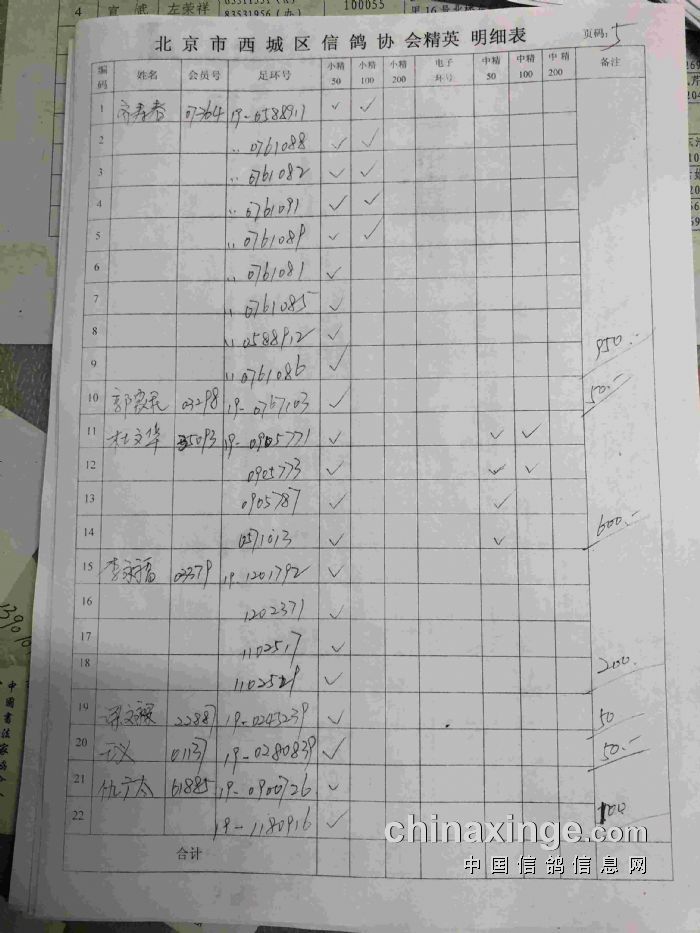 4 宣武 左荣祥
83531956(办)
100055
北京市西城区信鸽协会精英 明细表
页码: 5
编码 姓名 会员号 足环号 小精50 小精100 小精200 电子环号 中精50 中精100 中精200 备注
1 07364 19-0588911 ✓ ✓
2 〃 0761088 ✓ ✓
3 〃 0761082 ✓ ✓
4 〃 0761091 ✓ ✓
5 〃 0761089 ✓ ✓
6 〃 0761081 ✓
7 〃 0761085 ✓
8 〃 0588912 ✓
9 〃 0761086 ✓ 950.-
10 03298 19-0767103 ✓ 50.-
11 杜文华 35093 19-0905771 ✓ ✓ ✓
12 0905773 ✓ ✓ ✓
13 0905787 ✓ ✓
14 0571013 ✓ ✓ 600.-
15 李永福 03379 19-1201792 ✓
16 1202371 ✓
17 1102517 ✓
18 1102529 ✓ 200.
19 22887 19-0245239 ✓ 50
20 01137 19-0280839 ✓ 50.-
21 仇广太 61885 19-0900726 ✓
22 19-1180916 ✓ 100
合计
chinaxinge.com
中国信鸽信息网